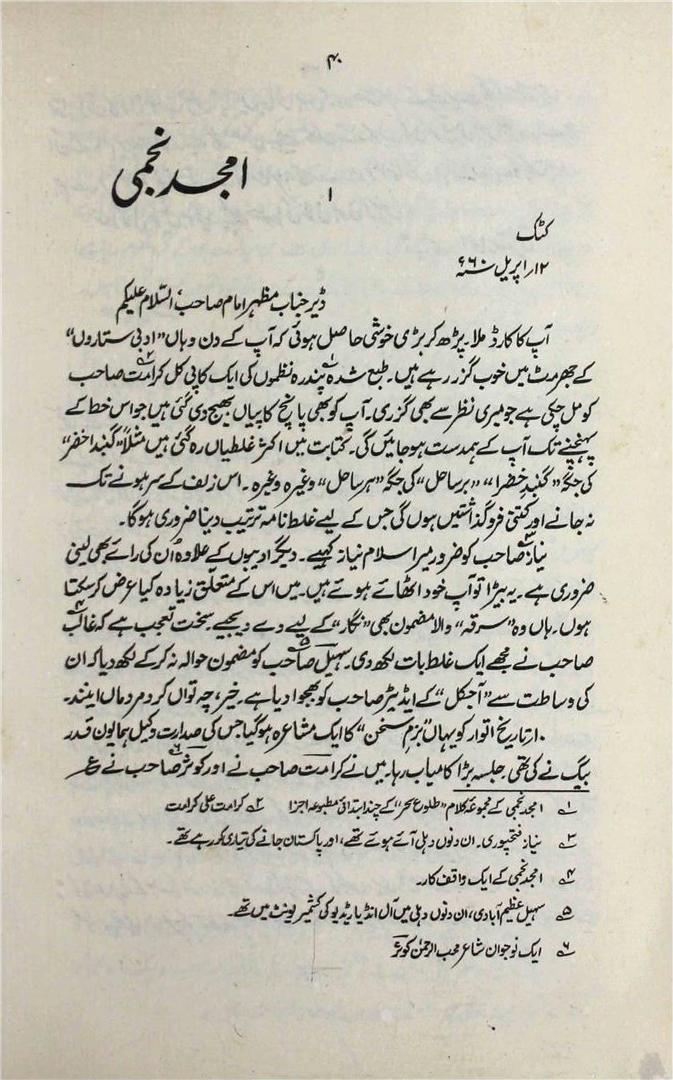 ۴۰
امجد نجمی
۱
کٹک
۱۲؍اپریل ۶۰ء
ڈیر جناب مظہر امام صاحب! السّلام علیکم
آپ کا کارڈ ملا۔ پڑھ کر بڑی خوشی حاصل ہوئی کہ آپ کے دن وہاں "ادبی ستاروں"
کے جھرمٹ میں خوب گزر رہے ہیں۔ طبع شدہ۱ پندرہ نظموں کی ایک کاپی کل کرامت۲ صاحب
کو مل چکی ہے جو میری نظر سے بھی گزری۔ آپ کو بھی پانچ کاپیاں بھیج دی گئی ہیں جو اس خط کے
پہنچنے تک آپ کے ہمدست ہو جائیں گی۔ کتابت میں اکثر غلطیاں رہ گئی ہیں مثلاً "گنبد اخضر"
کی جگہ "گنبدِ خضرا" "بر ساحل" کی جگہ "ہر ساحل" وغیرہ وغیرہ۔ اس زلف کے سر ہونے تک
نہ جانے اور کتنی فروگذاشتیں ہوں گی جس کے لیے غلط نامہ ترتیب دینا ضروری ہوگا۔
نیاز۳ صاحب کو ضرور میرا سلام نیاز کہیے۔ دیگر ادیبوں کے علاوہ اُن کی رائے بھی لینی
ضروری ہے۔ یہ بیڑا تو آپ خود اٹھائے ہوئے ہیں۔ میں اس کے متعلق زیادہ کیا عرض کر سکتا
ہوں۔ ہاں وہ "سرقہ" والا مضمون بھی "نگار" کے لیے دے دیجیے۔ سخت تعجب ہے کہ غالب۴
صاحب نے مجھے ایک غلط بات لکھ دی۔ سہیل۵ صاحب کو مضمون حوالہ نہ کرکے لکھ دیا کہ ان
کی وساطت سے "آجکل" کے ایڈیٹر صاحب کو بھجوا دیا ہے۔ خیر، چہ تواں کرد مردماں ایند۔
۱۰؍تاریخ اتوار کو یہاں "بزمِ سخن" کا ایک مشاعرہ ہوگیا جس کی صدارت وکیل ہمایوں قدر
بیگ نے کی تھی۔ جلسہ بڑا کامیاب رہا۔ میں نے کرامت صاحب نے اور کوثر۶ صاحب نے ع
۱؎ امجد نجمی کے مجموعۂ کلام "طلوعِ سحر" کے چند ابتدائی مطبوعہ اجزا ۲؎ کرامت علی کرامت
۳؎ نیاز فتحپوری۔ ان دنوں دہلی آئے ہوئے تھے، اور پاکستان جانے کی تیاری کر رہے تھے۔
۴؎ امجد نجمی کے ایک واقف کار۔
۵؎ سہیل عظیم آبادی، ان دنوں دہلی میں آل انڈیا ریڈیو کی کشمیر یونٹ میں تھے۔
۶؎ ایک نوجوان شاعر محب الرحمٰن کوثر